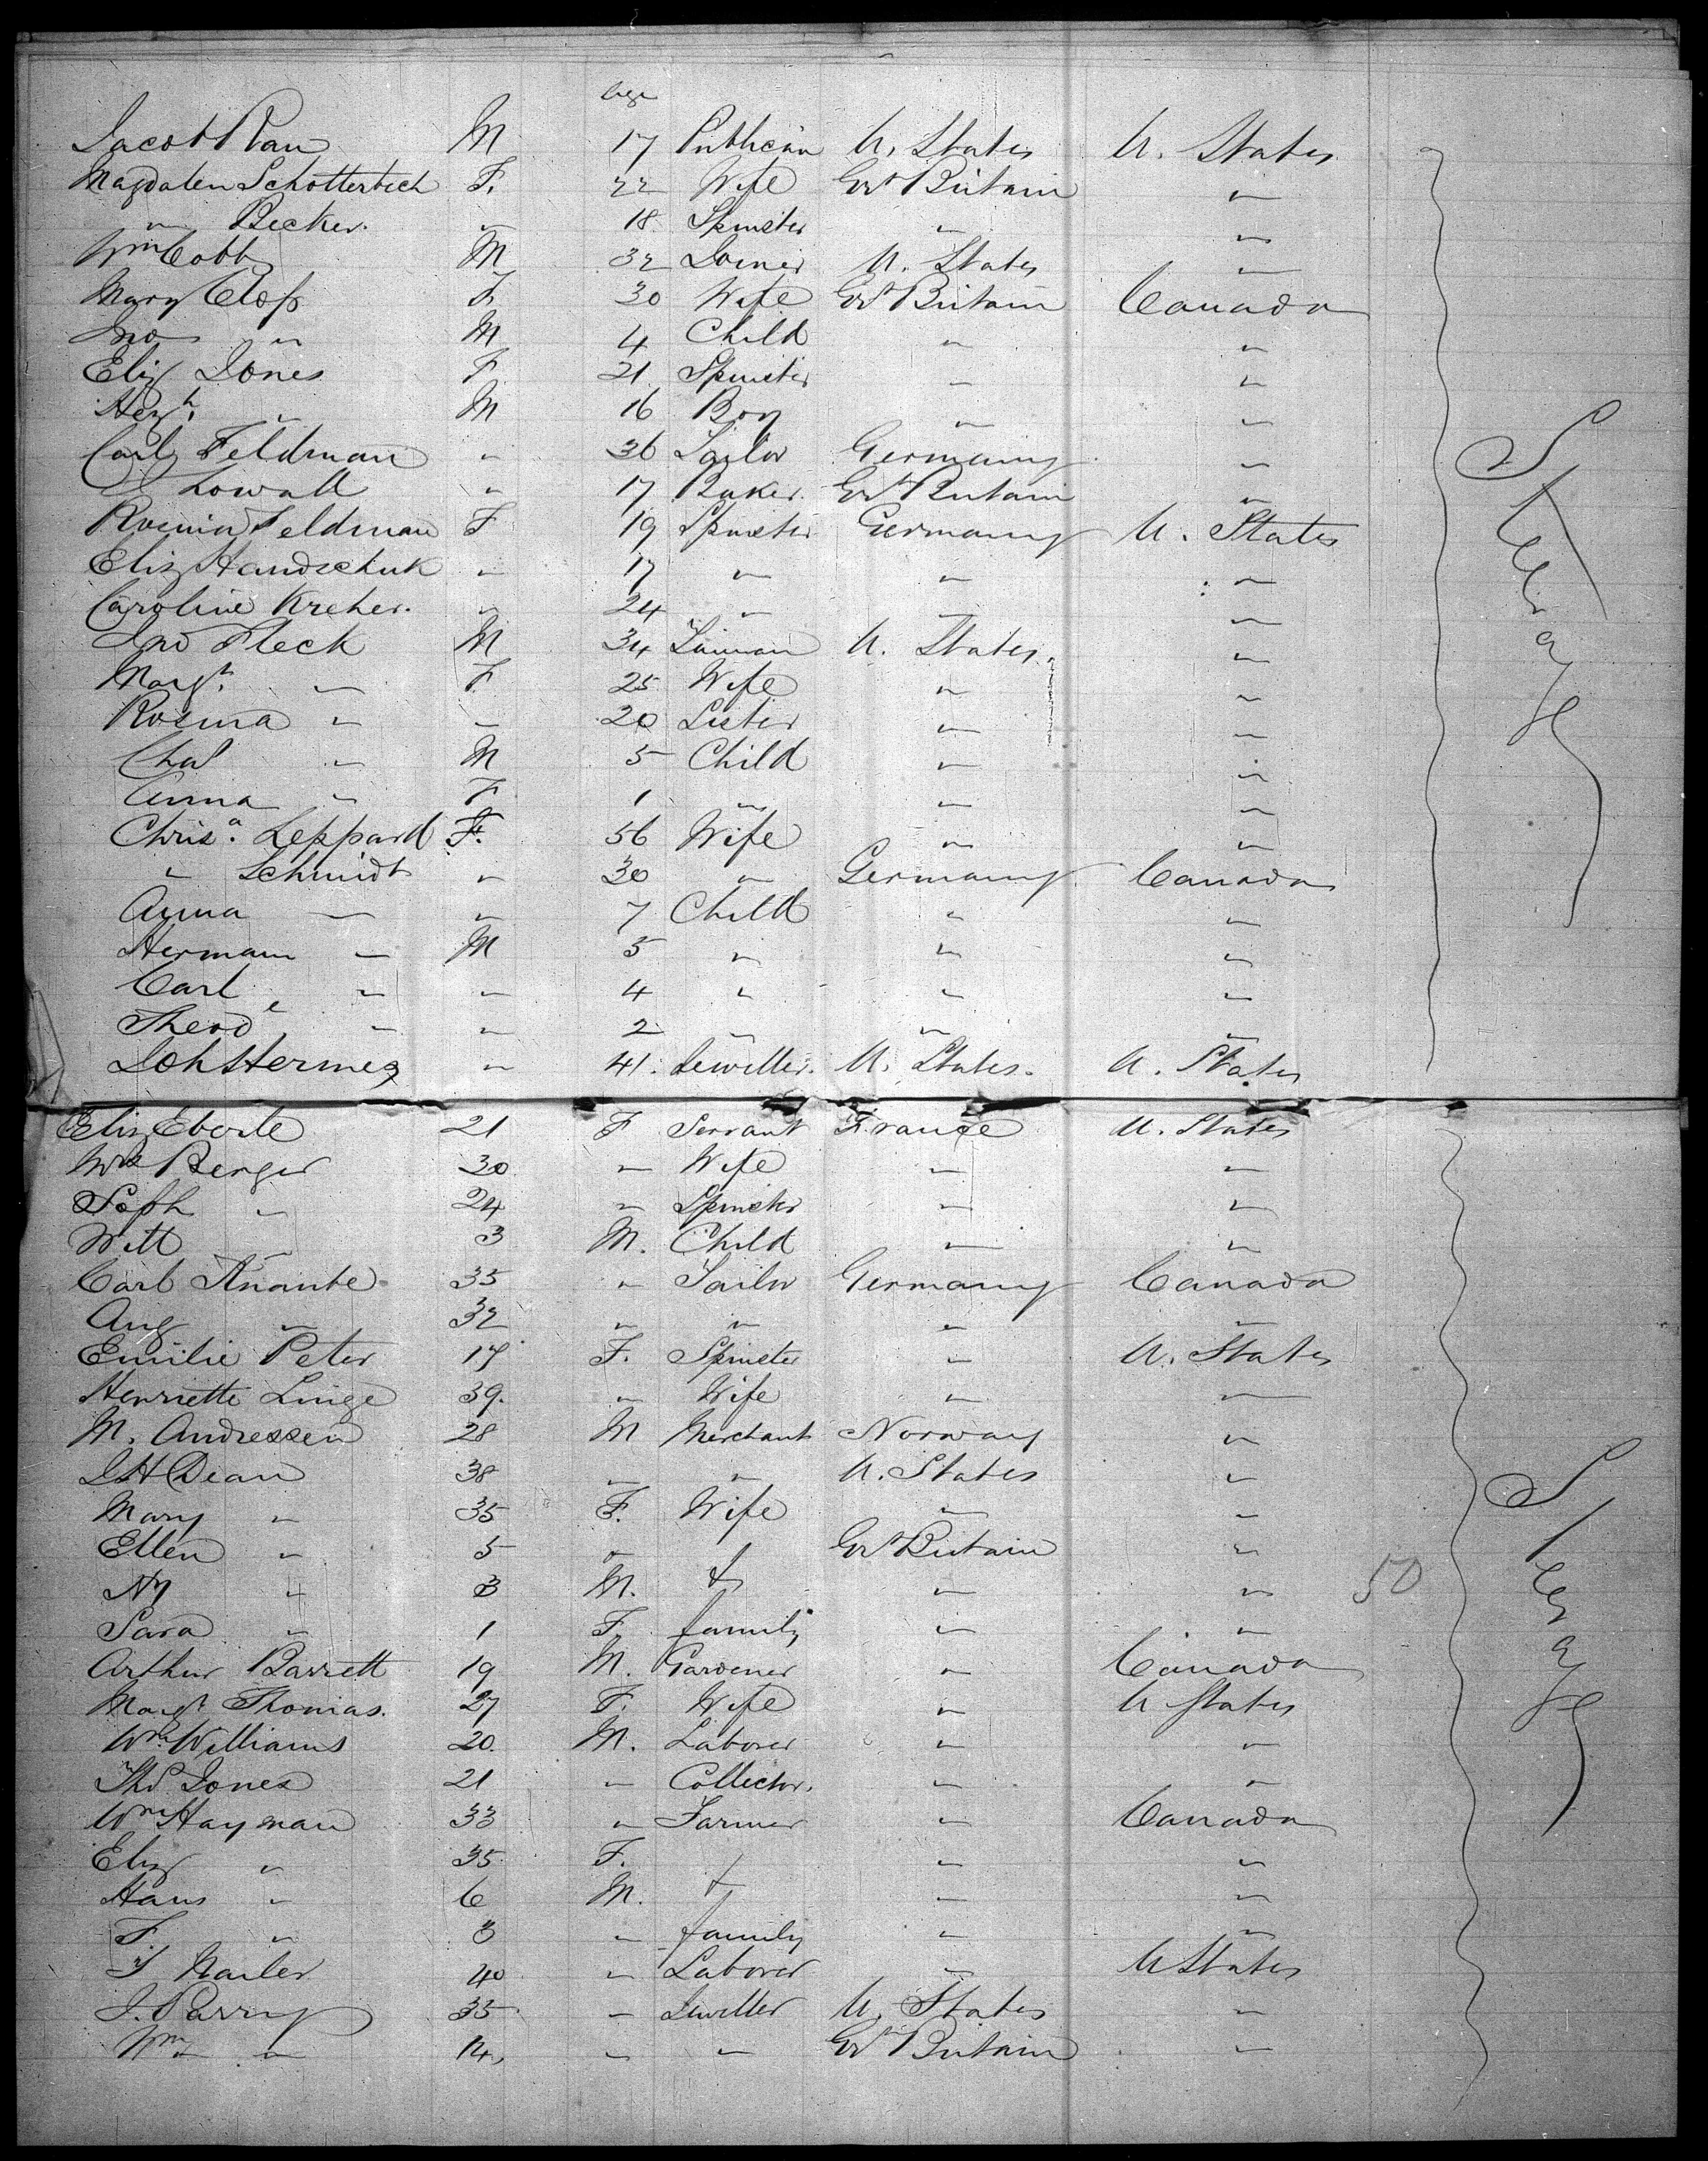 Age
Jacob Rau M 17 Publican U. States U. States
Magdalen Schotterbeck F. 22 Wife Grt Britain "
" Becker. " 18 Spinster " "
Wm Cobb M 32 Joiner U. States "
Mary Closs F 30 Wife Grt Britain Canada
Jno " M 4 Child " "
Eliz Jones F 21 Spinster " "
" M 16 Boy " "
Carl Feldman " 36 Tailor Germany "
Lowall " 17 Baker. Grt Britain "
Rosina Feldman F 19 Spinster Germany U. States
Eliz Handschuk " 17 " " "
Caroline Kreher. " 24 " " "
Jno Fleck M 34 U. States. "
Margt. " F. 25 Wife " "
Rosina " " 20 Sister " "
Chas " M 5 Child " "
Anna " F 1 " " "
Chrisa. Leppard F. 56 Wife " "
" Schmidt " 30 " Germany Canada
Anna " " 7 Child " "
Hermann " M 5 " " "
Carl " " 4 " " "
Theode " " 2 " " "
Joh Hermes " 41. Jeweller. U. States. U. States
Steerage
Eliz Eberle 21 F Servant France U. States
Berger 30 " Wife " "
Soph " 24 " Spinster " "
Will " 3 M. Child " "
Carl Knante 35 " Tailor Germany Canada
Aug " 32 " " " "
Emilie Peter 17 F. Spinster " U. States
Henriette Linge 39. " Wife " "
M. Andressen 28 M Merchant Norway "
J H Dean 38 " " U. States "
Mary " 35 F. Wife " "
Ellen " 5 " Grt Britain "
Ny " 3 M. & " " 50
Sara " 1 F. family " "
Arthur Barrett 19 M. Gardener " Canada
Margt Thomas. 27 F. Wife " U States
Wm Williams 20. M. Laborer " "
Thos Jones 21 " Collector. " "
Wm Hayman 33 " Farmer " Canada
Eliz " 35 F. " "
Hans " 6 M. & " "
F " 3 " family " "
T Nailer 40 " Laborer " U States
J. Parry 35 " Jeweller U. States "
Wm " 14, " " Grt Britain "
Steerage